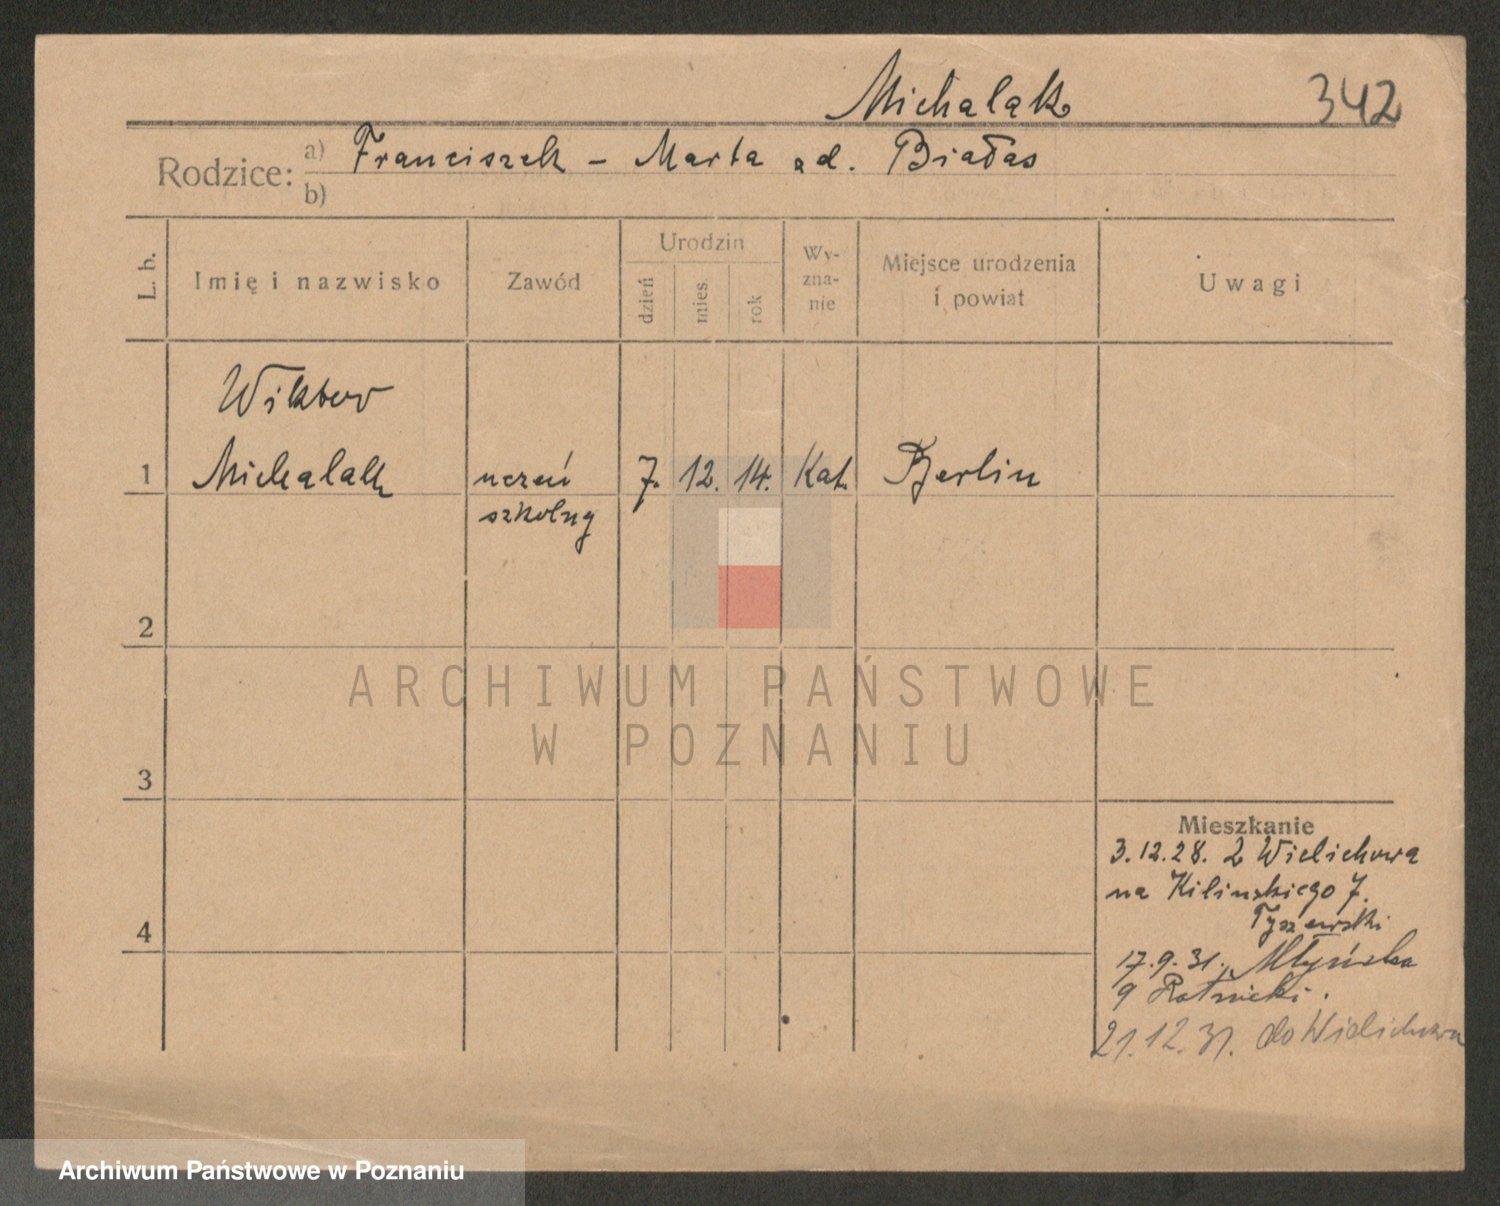 Michalak 342
Rodzice: a) Franciszek – Marta od. Białas
b)
L. b. Imię i nazwisko Zawód Urodzin dzień mies. rok Wy-zna-nie Miejsce urodzenia i powiat Uwagi
Wiktor
1 Michalak uczeń 7. 12. 14. Kat. Berlin
szkolny
2
ARCHIWUM PAŃSTWOWE
W POZNANIU
3
Mieszkanie
3.12.28. z Wielichowa
na Kilinskiego 7.
Tyszewski
4
17.9.31. Młyńska
9 Ratnicki.
21.12.31. do Wielichowa
Archiwum Państwowe w Poznaniu